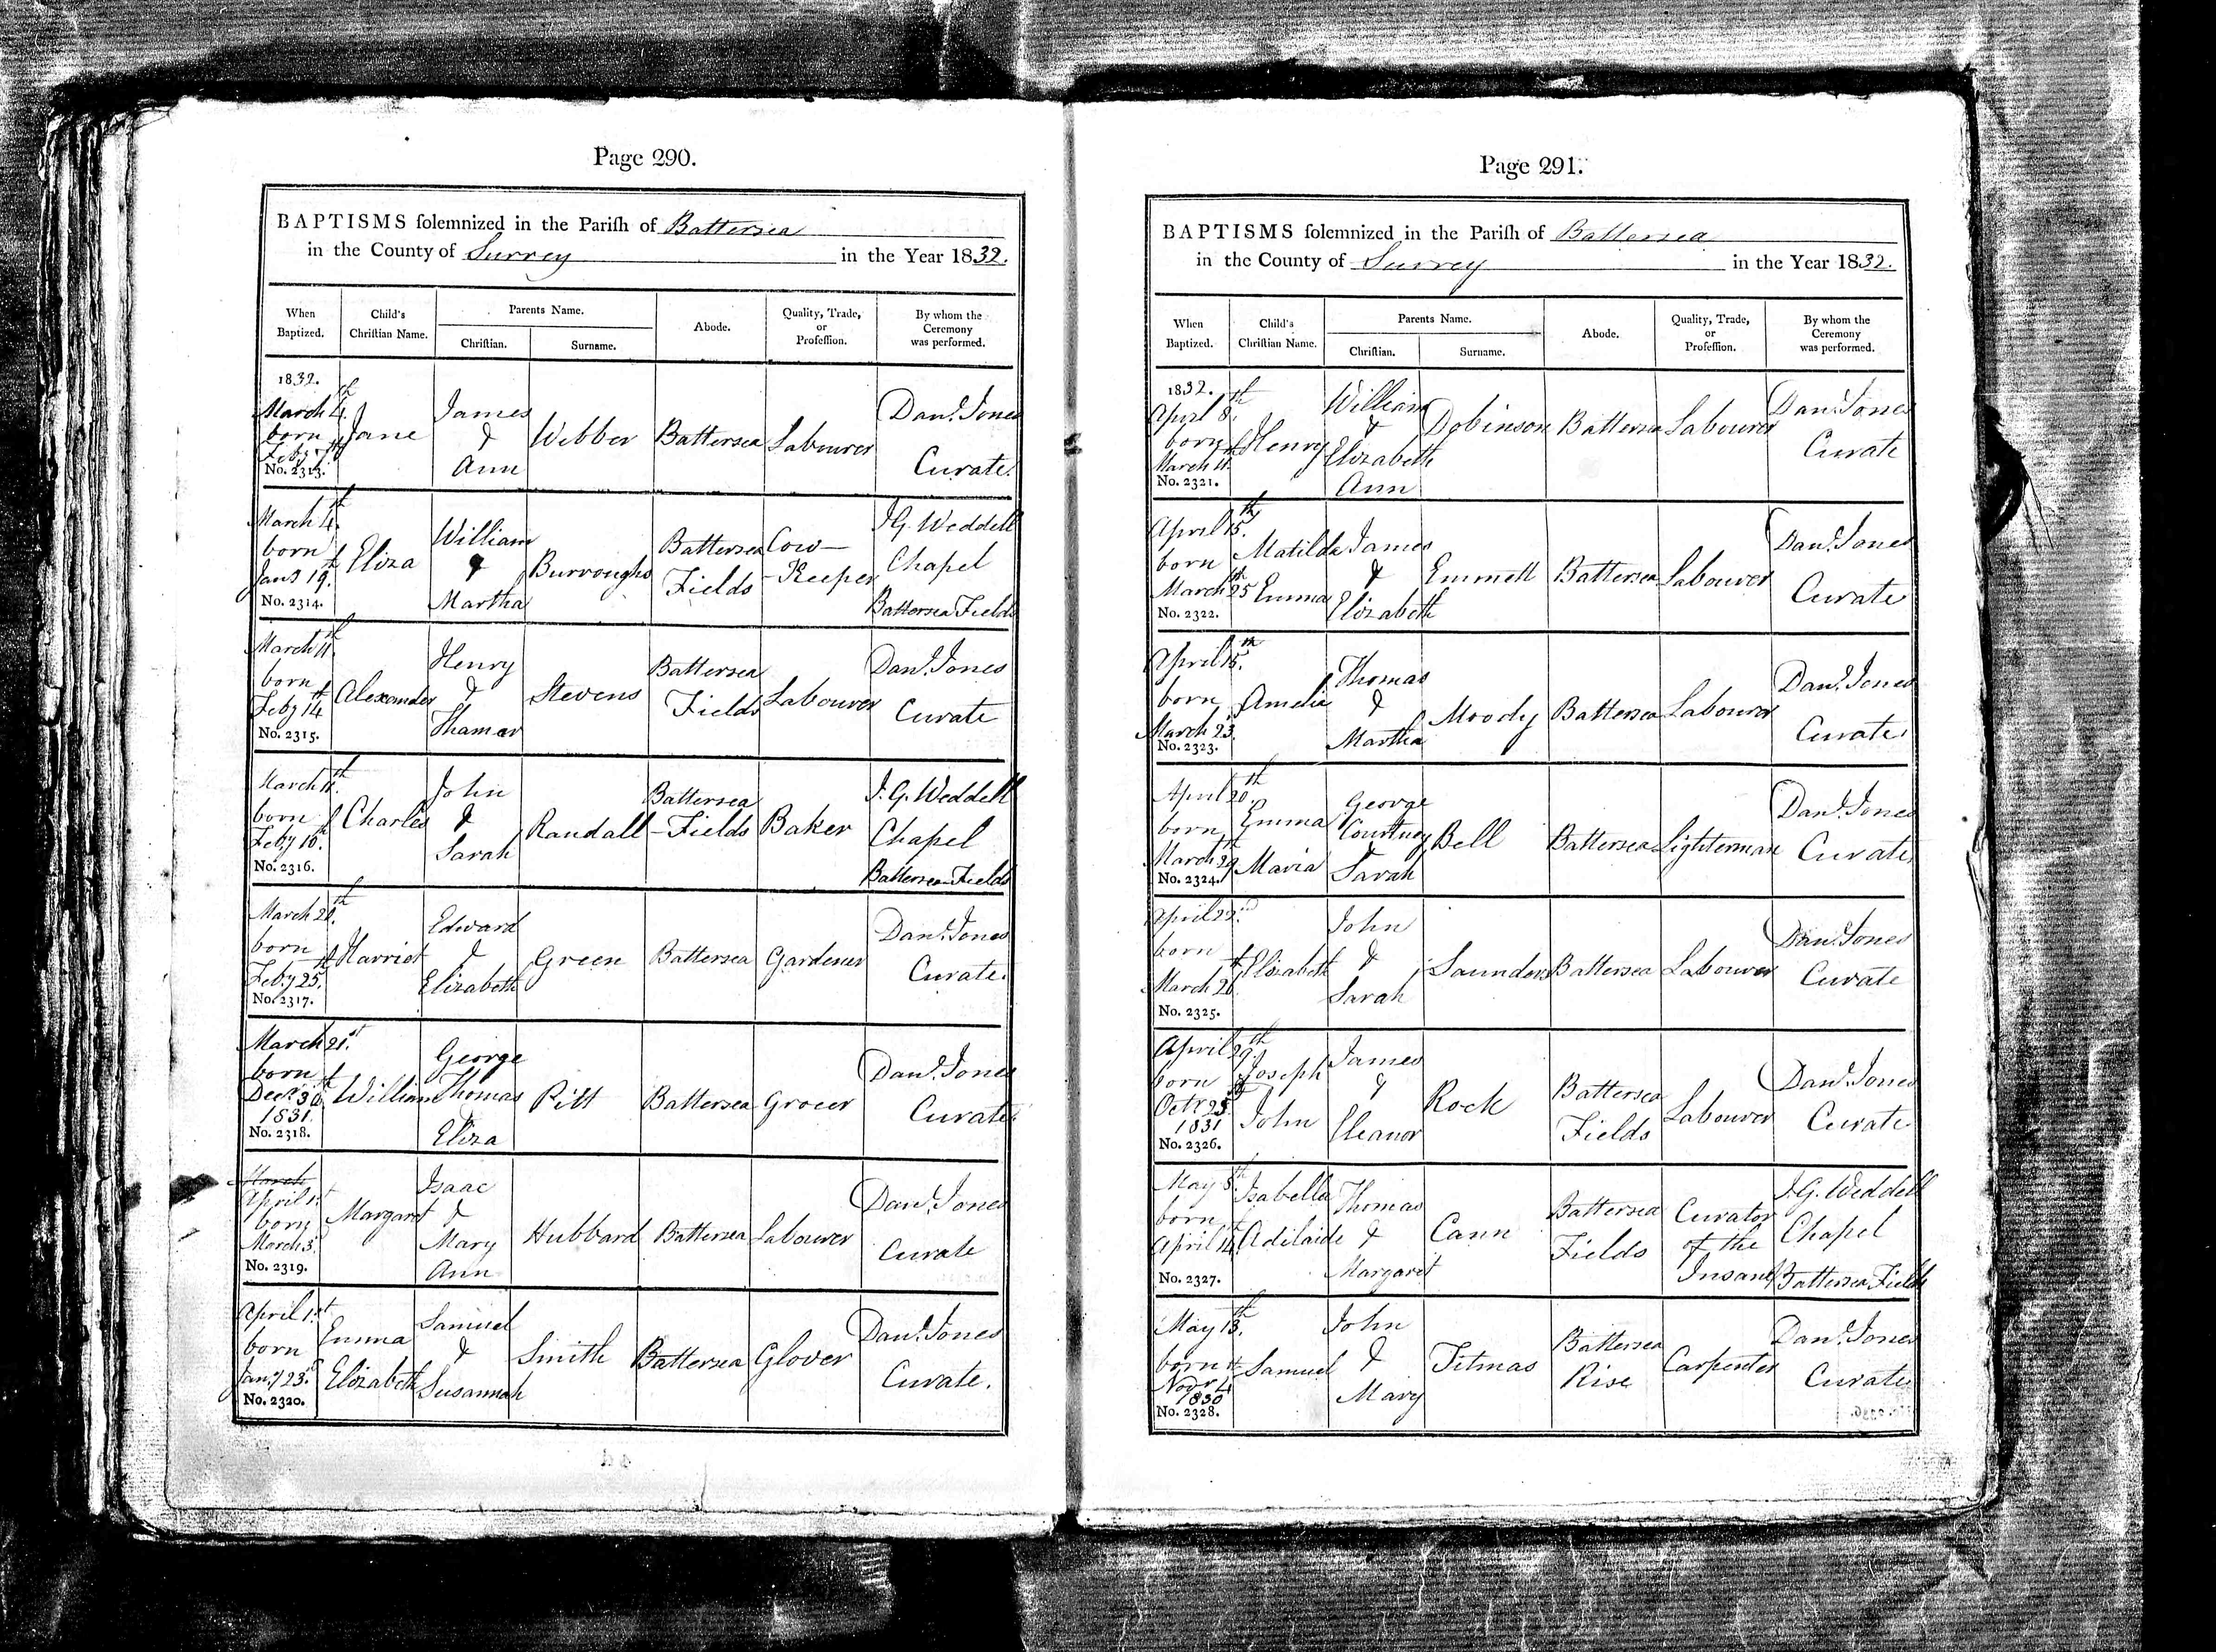 Page 290.
BAPTISMS solemnized in the Parish of Battersea
in the County of Surrey in the Year 1832.
When Baptized.
Child's Christian Name.
Parents Name.
Christian.
Surname.
Abode.
Quality, Trade, or Profession.
By whom the Ceremony was performed.
1832.
March 4th
born
Feby 7th
No. 2313.
Jane
James
&
Ann
Webber
Battersea
Labourer
Danl. Jones
Curate.
March 4th
born
Jany 19th
No. 2314.
Eliza
William
&
Martha
Burroughs
Battersea
Fields
Cow-
-Keeper
J G Weddell
Chapel
Battersea Fields
March 11th
born
Feby 14th
No. 2315.
Alexander
Henry
&
Thamar
Stevens
Battersea
Fields
Labourer
Danl. Jones
Curate
March 11th
born
Feby 10th
No. 2316.
Charles
John
&
Sarah
Randall
Battersea
-Fields
Baker
J. G. Weddell
Chapel
Battersea Fields
March
born
Feby 25th
No. 2317.
Harriot
Edward
&
Elizabeth
Green
Battersea
Gardener
Danl. Jones
Curate.
March 21st
born
Decr 30th
1831.
No. 2318.
William
George
Thomas
&
Eliza
Pitt
Battersea
Grocer
Danl. Jones
Curate.
March
April 1st
born
March 3d
No. 2319.
Margaret
Isaac
&
Mary
Ann
Hubbard
Battersea
Labourer
Danl. Jones
Curate
April 1st
born
Jany 23d
No. 2320.
Emma
Elizabeth
Samuel
&
Susannah
Smith
Battersea
Glover
Danl. Jones
Curate.
Page 291.
BAPTISMS solemnized in the Parish of Battersea
in the County of Surrey in the Year 1832.
When Baptized.
Child's Christian Name.
Parents Name.
Christian.
Surname.
Abode.
Quality, Trade, or Profession.
By whom the Ceremony was performed.
1832.
April 8th
born
March 11th
No. 2321.
Henry
William
&
Elizabeth
Ann
Dobinson
Battersea
Labourer
Danl. Jones
Curate
April 15th
born
March 25th
No. 2322.
Matilda
Emma
James
&
Elizabeth
Emmett
Battersea
Labourer
Danl. Jones
Curate
April 15th
born
March 23d
No. 2323.
Amelia
Thomas
&
Martha
Moody
Battersea
Labourer
Danl. Jones
Curate
April 20th
born
March 29th
No. 2324.
Emma
Maria
George
Courtney
&
Sarah
Bell
Battersea
Lighterman
Danl. Jones
Curate
April 22nd
born
March
No. 2325.
Elizabeth
John
&
Sarah
Saunders
Battersea
Labourer
Danl. Jones
Curate
April 29th
born
Octr 25th
1831
No. 2326.
Joseph
John
James
&
Eleanor
Rock
Battersea
Fields
Labourer
Danl. Jones
Curate
May 8th
born
April 14th
No. 2327.
Isabella
Adilaide
Thomas
&
Margaret
Cann
Battersea
Fields
Curator
of the
Insane
J. G. Weddell
Chapel
Battersea Fields
May 13th
born
Novr 4th
1830
No. 2328.
Samuel
John
&
Mary
Titmas
Battersea
Rise
Carpenter
Danl. Jones
Curate